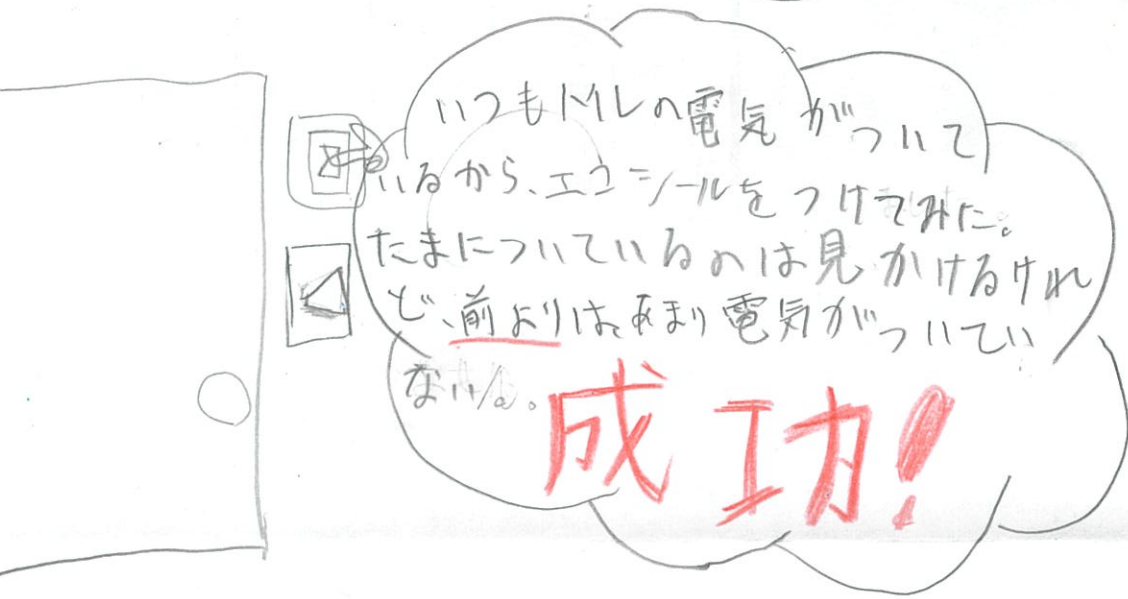 いつもトイレの電気がついて
いるから、エコシールをつけてみた。
たまについているのは見かけるけれ
ど、前よりは、あまり電気がついてい
ない。
成功!